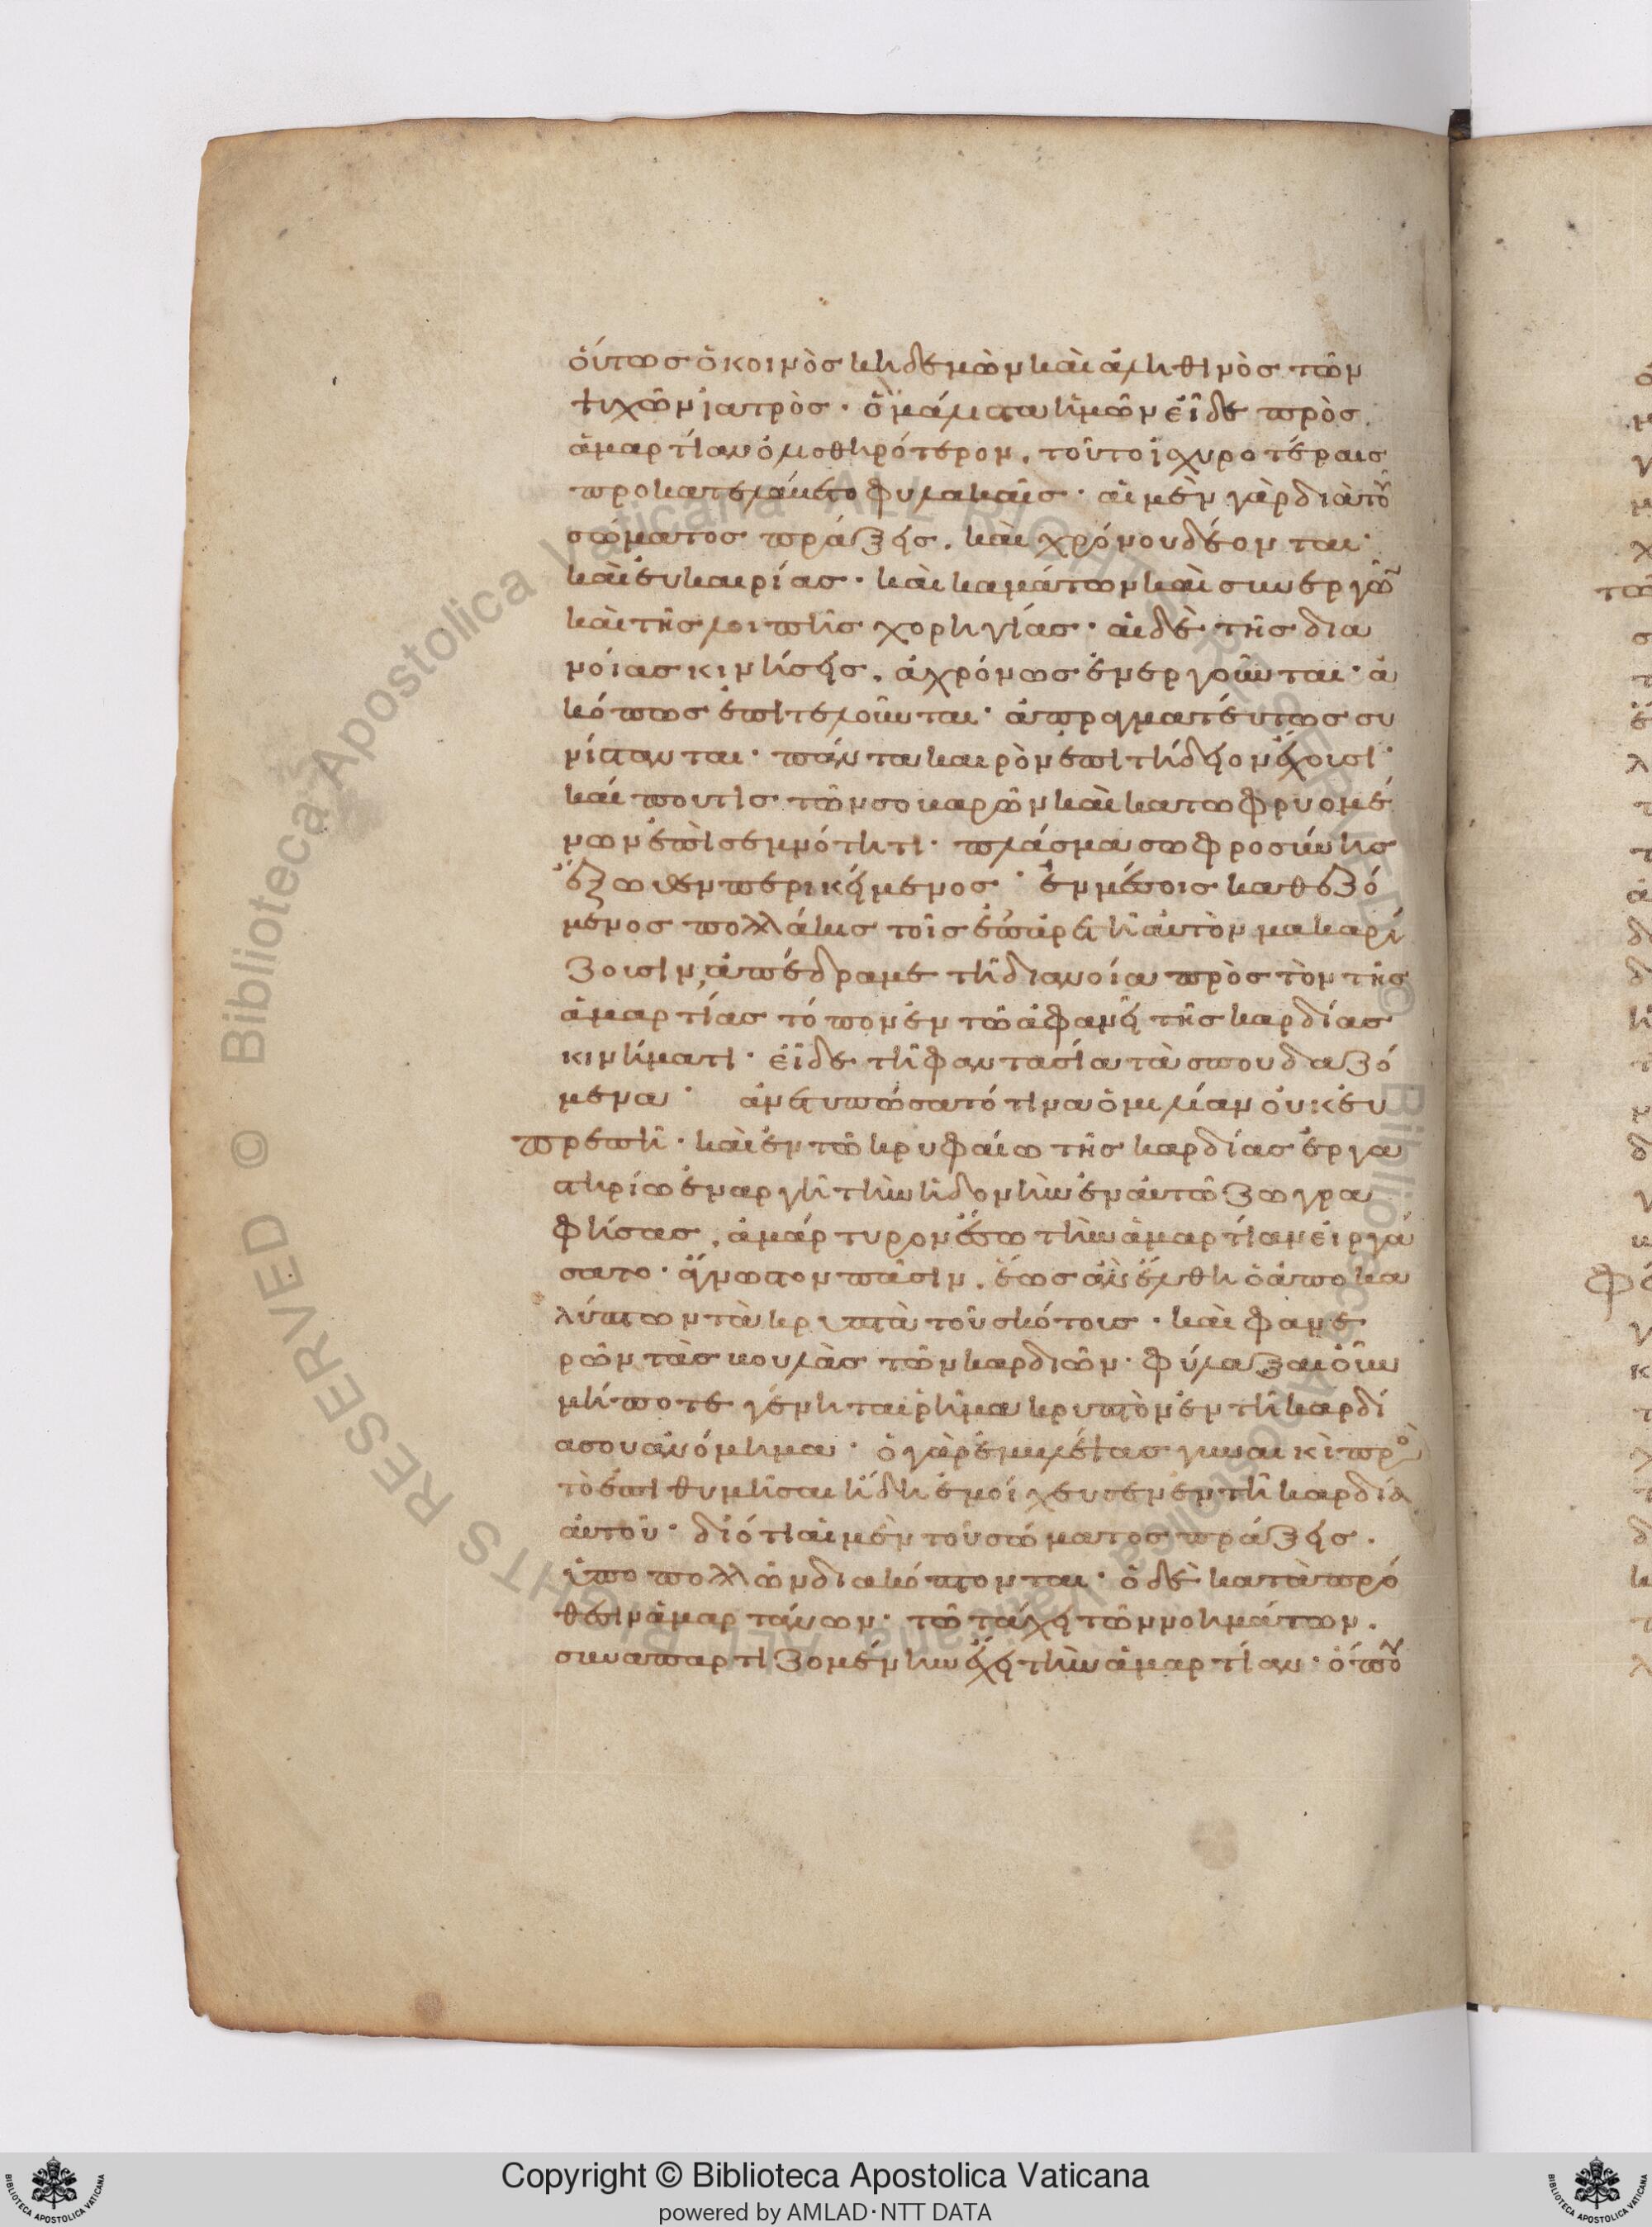 οὕτως ὁ κοινὸς κηδεμὼν καὶ ἀληθινὸς τῶν
ψυχῶν ἰατρὸς · ὃ μάλιστα ἡμῶν εἶδε πρὸς
ἁμαρτίαν ὀλισθηρότερον . τοῦτο ἰσχυροτέραις
προκατελάβετο φυλακαῖς · αἱ μὲν γὰρ διὰ τοῦ
σώματος πράξεις . καὶ χρόνου δέονται ·
καὶ εὐκαιρίας · καὶ καμάτων καὶ συνεργῶν
καὶ τῆς λοιπῆς χορηγίας · αἱ δὲ τῆς δια
νοίας κινήσεις . ἀχρόνως ἐνεργοῦνται · ἀ
κόπως ἐπιτελοῦνται · ἀπραγματεύτως συ
νίστανται · πάντα καιρὸν ἐπιτήδειον ἔχουσι ·
καί που τις τῶν σοβαρῶν καὶ κατωφρυομέ
νων ἐπὶ σεμνότητι · πλάσμα σωφροσύνης
ἔξωθεν περικείμενος · ἐν μέσοις καθεζό
μενος πολλάκις τοῖς ἐπ' ἀρετῇ αὐτὸν μακαρί
ζουσιν, ἀπέδραμε τῇ διανοία πρὸς τὸν τῆς
ἁμαρτίας τόπον ἐν τῶ ἀφανεῖ τῆς καρδίας
κινήματι · εἶδε τῇ φαντασία τὰ σπουδαζό
μενα · ἀνετυπώσατό τινα ὁμιλίαν οὐκ εὐ
πρεπῆ · καὶ ἐν τῶ κρυφαίω τῆς καρδίας ἐργα
στηρίω ἐναργῆ τὴν ἡδονὴν ἐν αὐτῶ ζωγρα
φήσας . ἀμάρτυρον ἔσω τὴν ἁμαρτίαν εἰργά
σατο · ἄγνωστον πᾶσιν . ἕως ἂν ἔλθη ὁ ἀποκα
λύπτων τὰ κρυπτὰ τοῦ σκότους · καὶ φανε
ρῶν τὰς βουλὰς τῶν καρδιῶν · φύλαξαι οὖν
μήποτε γένηται ῥῆμα κρυπτὸν ἐν τῇ καρδί
α σου ἀνόμημα · ὁ γὰρ ἐμβλέψας γυναικὶ πρὸς
τὸ ἐπιθυμῆσαι ἤδη ἐμοίχευσεν ἐν τῇ καρδία
αὐτοῦ · διότι αἱ μὲν τοῦ σώματος πράξεις .
ὑπο πολλῶν διακόπτονται · ὁ δὲ κατὰ πρό
θεσιν ἁμαρτάνων · τῶ τάχει τῶν νοημάτων .
συναπαρτιζομένην ἔχει τὴν ἁμαρτίαν · ὅπου